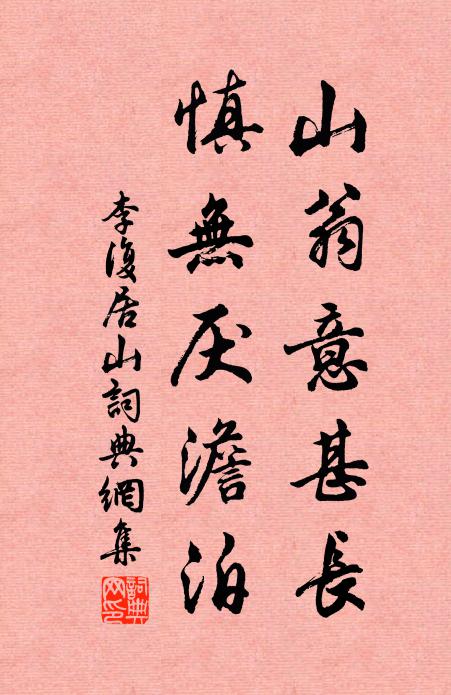 山翁意甚長
慎無厌澹泊
李復居山詞典網集
詞典網印